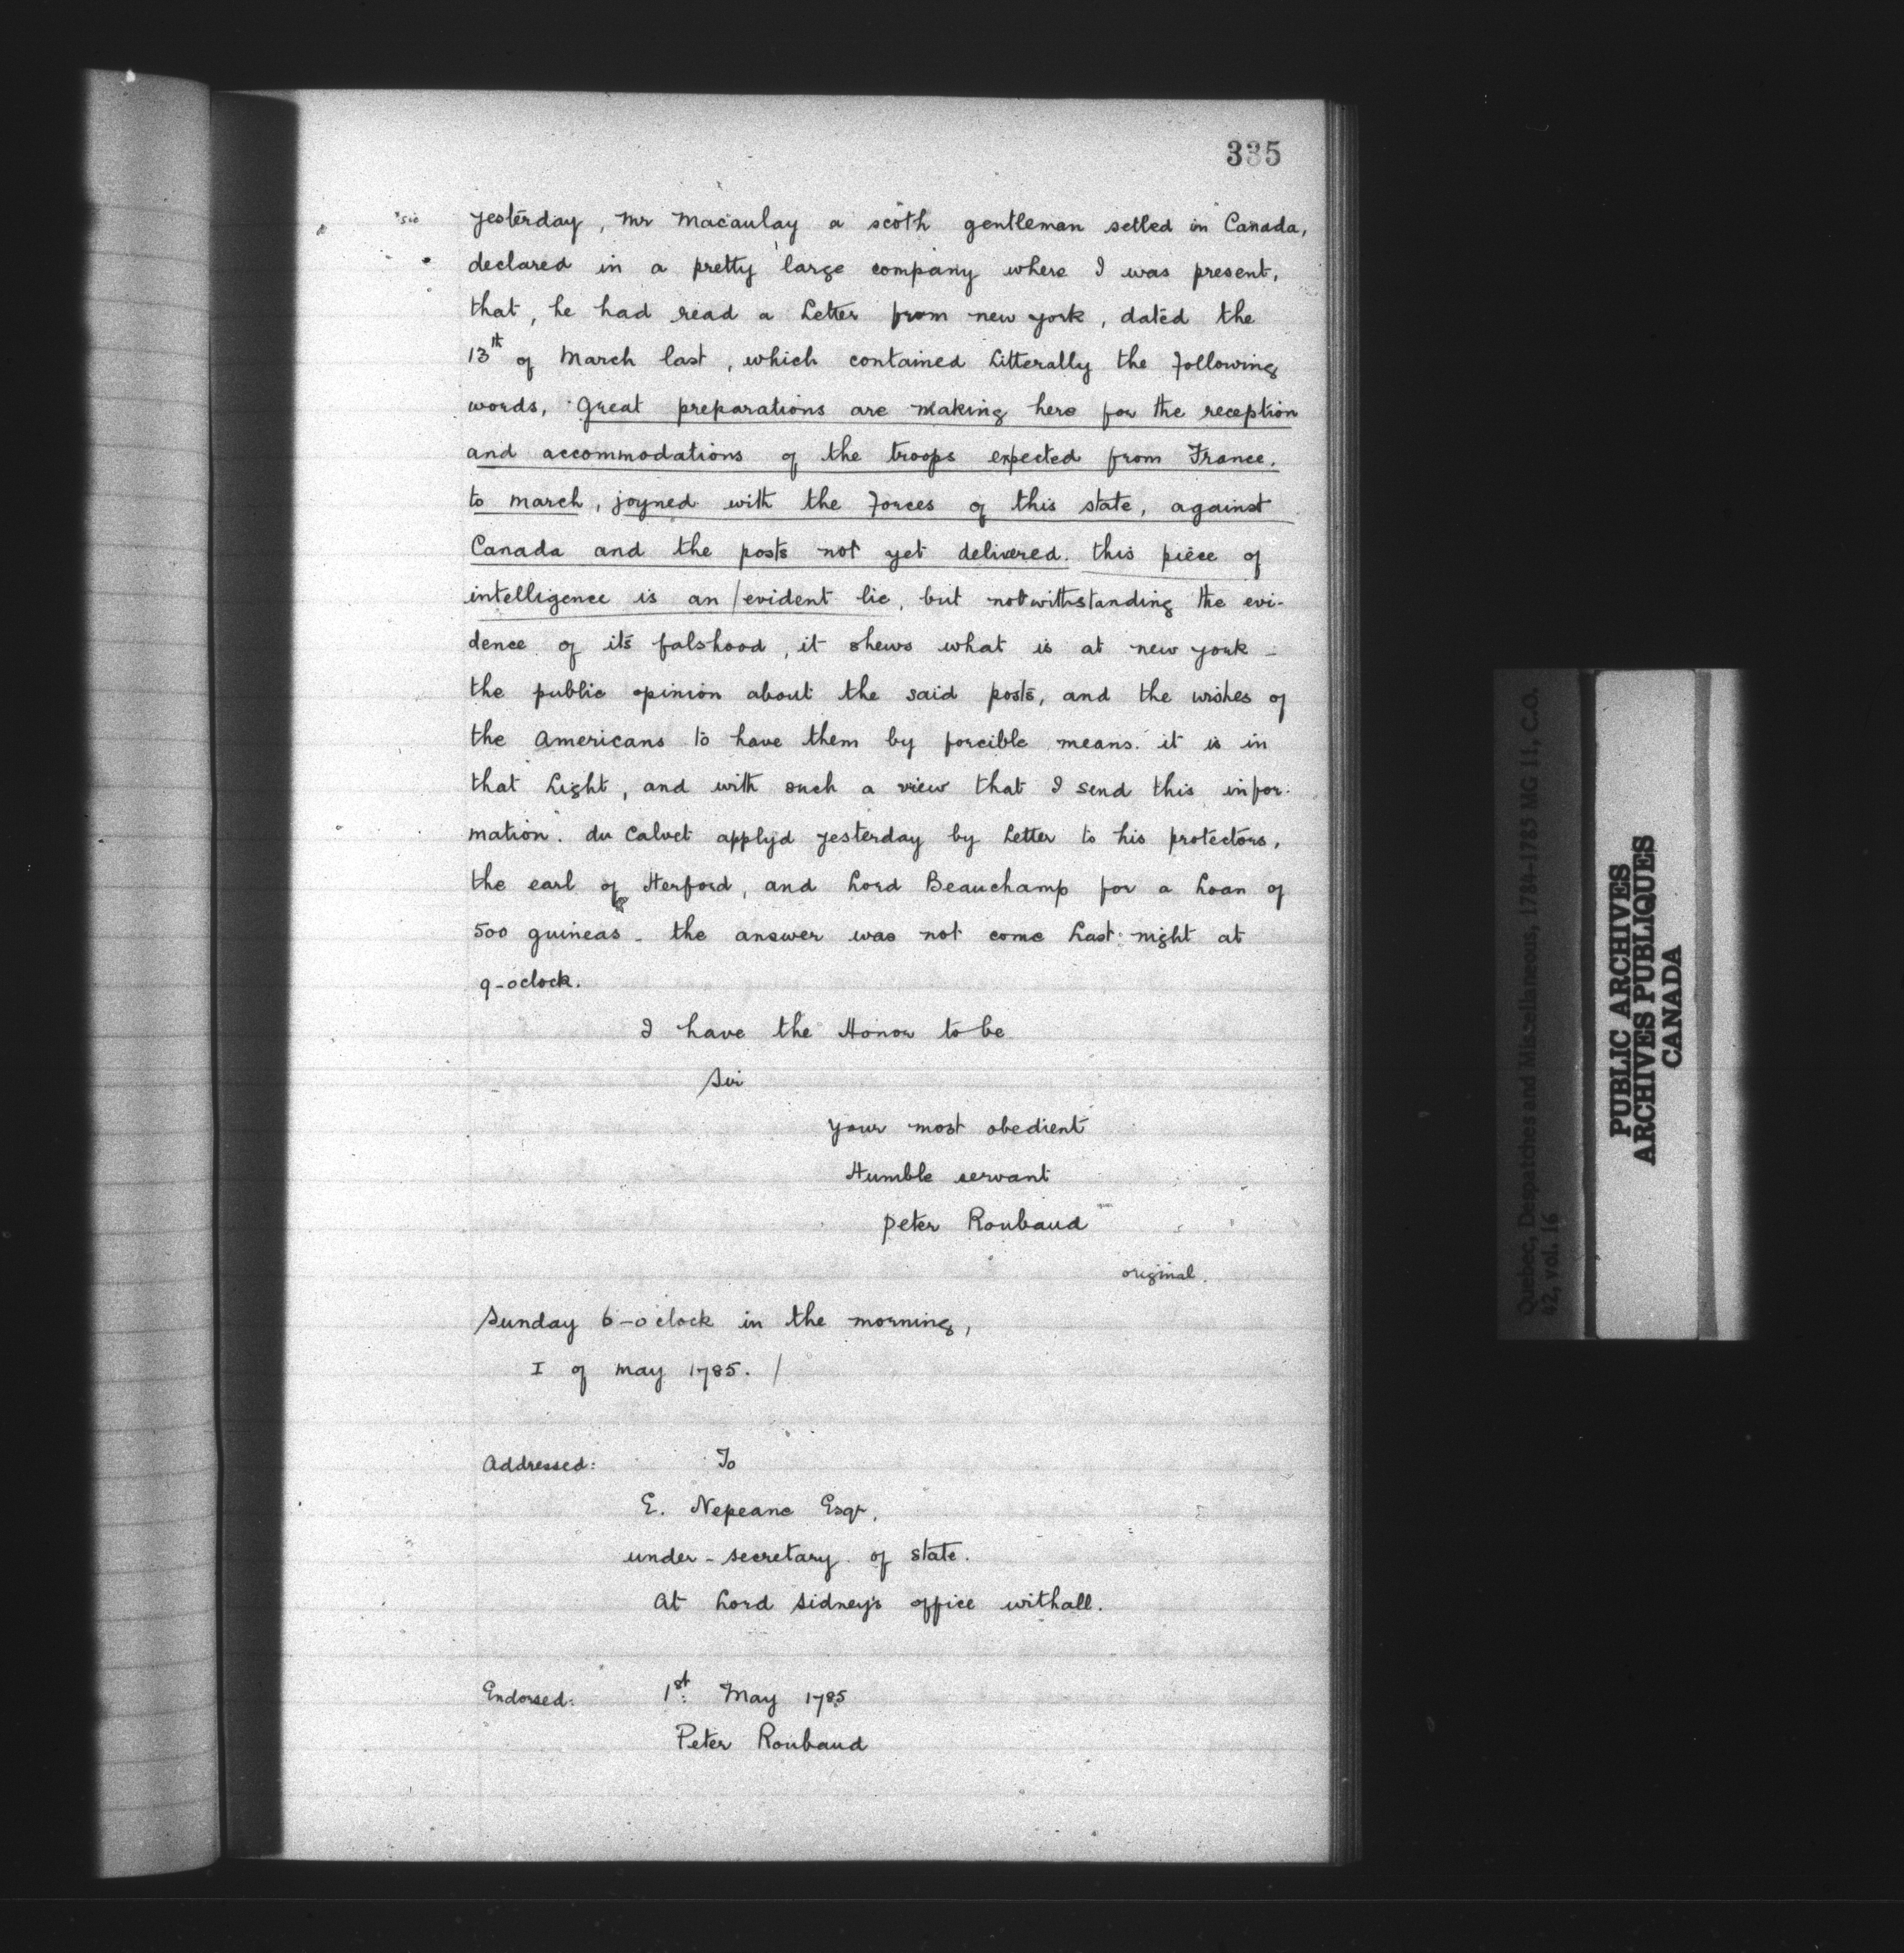 335
sic
yesterday, Mr Macaulay a scoth gentleman setled in Canada,
declared in a pretty large company where I was present,
that, he had read a Letter from new york, dated the
13th of March last, which contained Litterally the following
words, Great preparations are making here for the reception
and accommodations of the troops expected from France,
to march, joyned with the Forces of this state, against
Canada and the posts not yet delivered. this piece of
intelligence is an/evident lie, but notwithstanding the evi-
dence of its falshood, it shews what is at new york -
the public opinion about the said posts, and the wishes of
the Americans to have them by forcible means. it is in
that Light, and with such a view that I send this infor-
mation. du Calvet applyd yesterday by Letter to his protectors,
the earl of Herford, and Lord Beauchamp for a Loan of
500 guineas - the answer was not come Last night at
9-oclock.
I have the Honor to be
Sir
your most obedient
Humble servant
peter Roubaud
original.
Sunday 6-oclock in the morning,
I of may 1785. /
Addressed: To
E. Nepeane Esqr,
under-secretary of state.
At Lord Sidney's office withall.
Endorsed: 1st: May 1785
Peter Roubaud
Quebec, Despatches and Miscellaneous, 1784-1785 MG 11, C.O.
42, vol. 16
PUBLIC ARCHIVES
ARCHIVES PUBLIQUES
CANADA